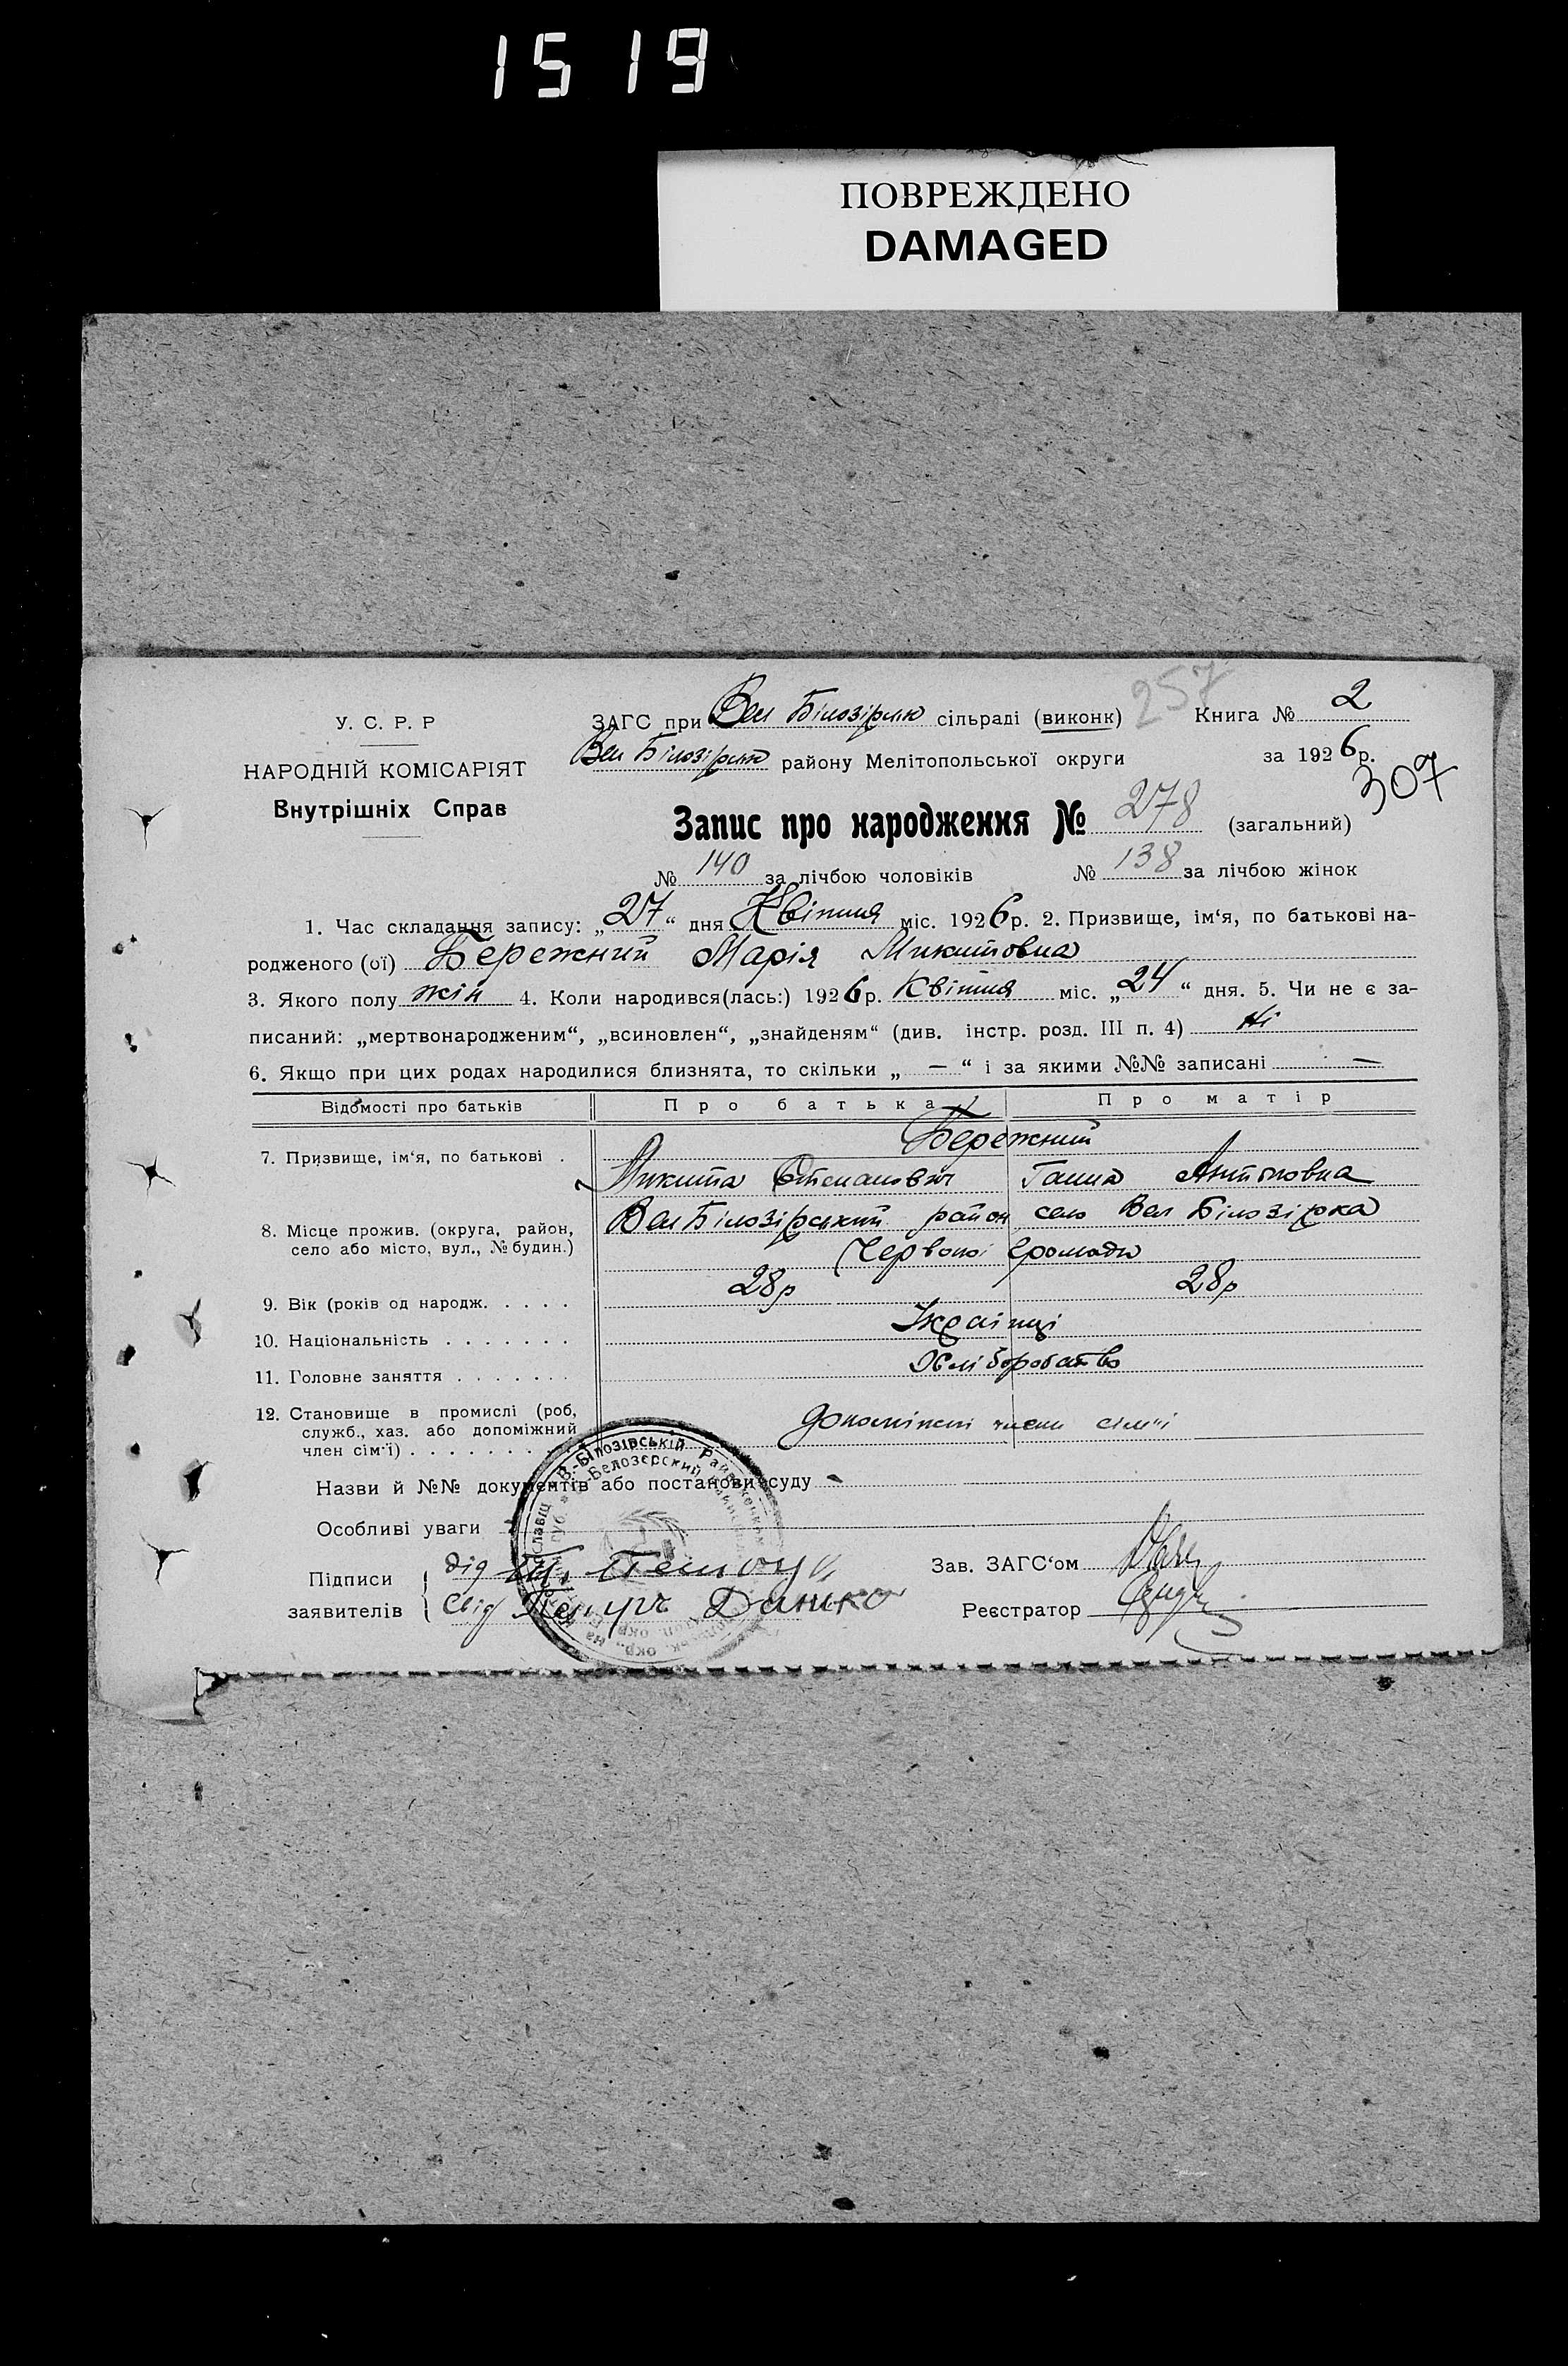 1519
ПОВРЕЖДЕНО
DAMAGED
257
У. С. Р. Р
ЗАГС при Вел Білозірск сільраді (виконк)
Книга № 2
НАРОДНІЙ КОМІСАРІЯТ
Вел Білозірськ району Мелітопольської округи
за 1926 р.
307
Внутрішніх Справ
Запис про народження № 278 (загальний)
№ 140 за лічбою чоловіків № 138 за лічбою жінок
1. Час складання запису: „27“ дня Квітня міс. 1926 р. 2. Призвище, ім‘я, по батькові на-
родженого (ої) Бережний Марія Микитовна
3. Якого полу жін 4. Коли народився(лась:) 1926 р. Квітня міс. „24“ дня. 5. Чи не є за-
писаний: „мертвонародженим“, „всиновлен“, „знайденям“ (див. інстр. розд. III п. 4) Ні
6. Якщо при цих родах народилися близнята, то скільки „ — “ і за якими №№ записані —
Відомості про батьків Про батька Про матір
Бережний
7. Призвище, ім‘я, по батькові .
Микита Степанович Ганна Антоновна
8. Місце прожив. (округа, район,
село або місто, вул., № будин.)
Вел Білозірський район село Вел Білозірка
Червоної Громади
9. Вік (років од народж. . . . . 28р 28р
10. Національність . . . . . . . Українці
11. Головне заняття . . . . . . . Хліборобство
12. Становище в промислі (роб,
служб., хаз. або допоміжний
член сім‘ї) . . . . . . . .
допоміжні члени сім'ї
Назви й №№ документів або постанови суду -
Особливі уваги
Підписи
заявителів
дід
Свід Данко
Зав. ЗАГС‘ом
Реєстратор
В.-Білозівській
Белозерский